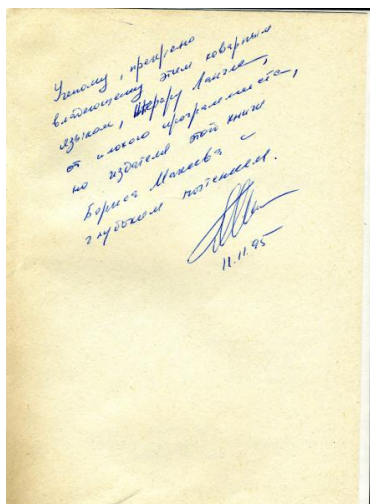 Ученому, прекрасно
владеющему этим коварным
языком, Жерару Лангле,
от плохого программиста,
но издателя этой книги
Бориса Макеева с
глубоким почтением.
11.11.95